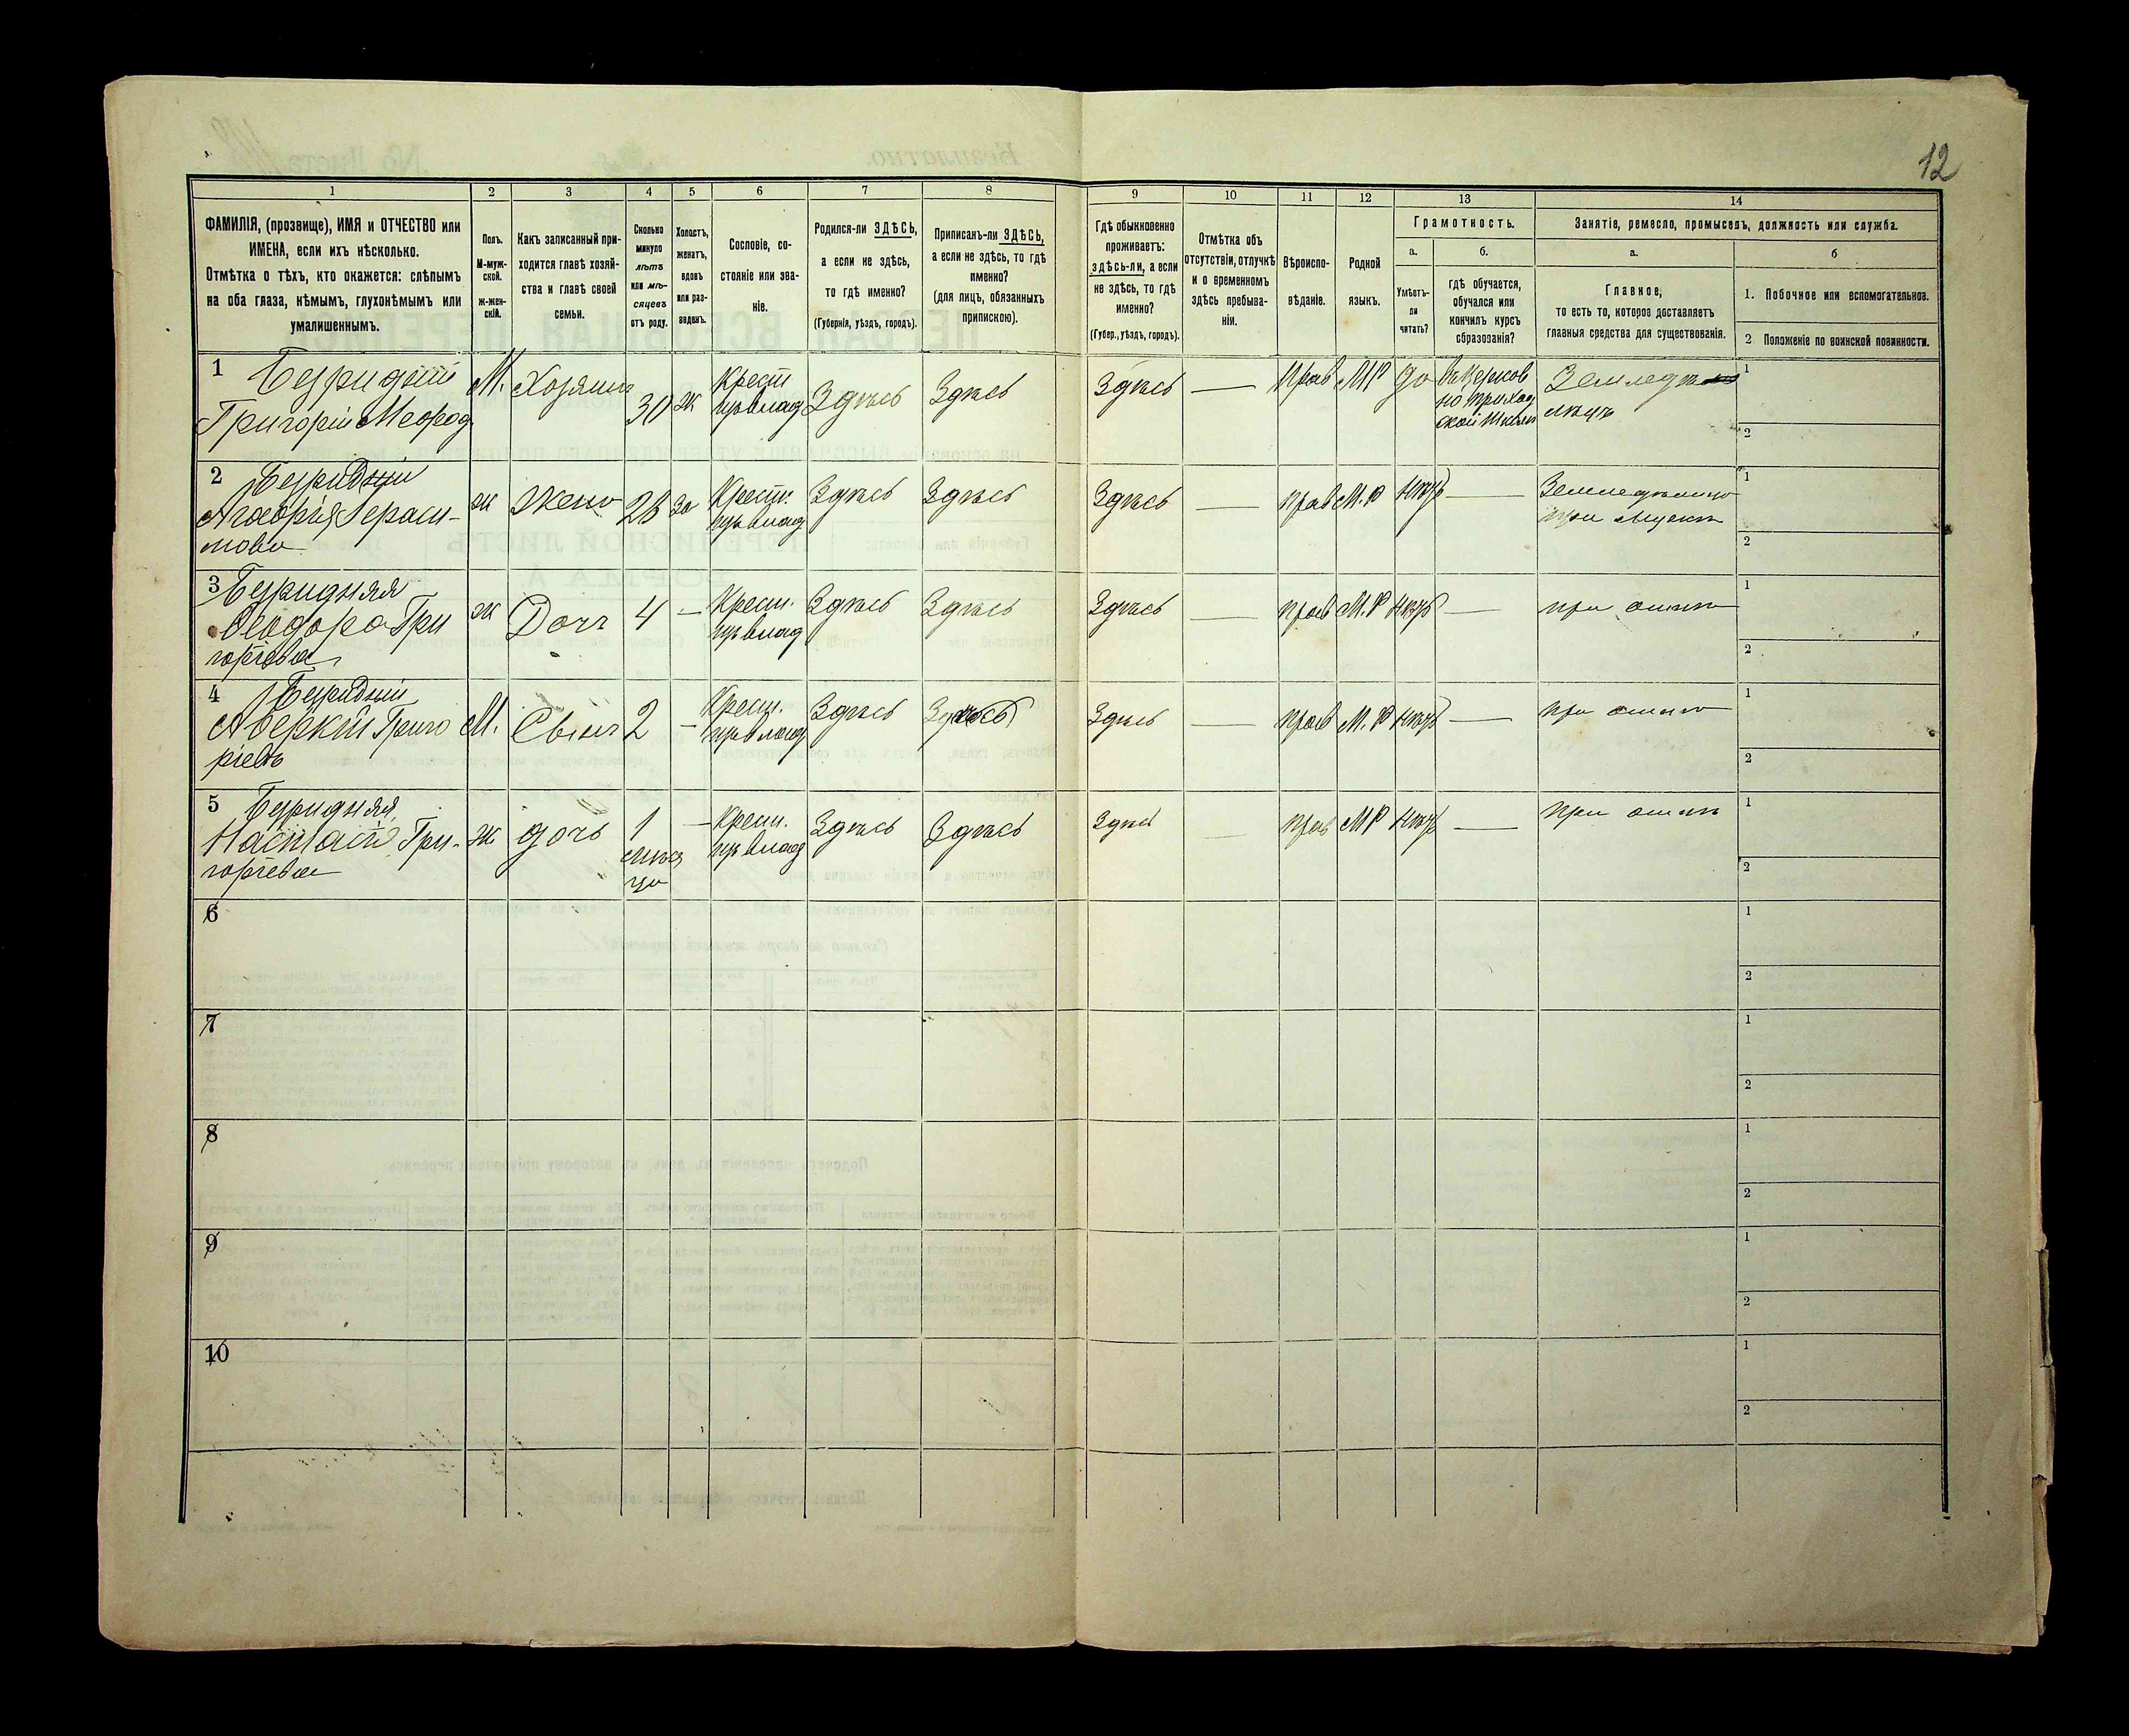 12
1 2 3 4 5 6 7 8 9 10 11 12 13 14
ФАМИЛІЯ, (прозвище), ИМЯ и ОТЧЕСТВО или
ИМЕНА, если ихъ нѣсколько.
Отмѣтка о тѣхъ, кто окажется: слѣпымъ
на оба глаза, нѣмымъ, глухонѣмымъ или
умалишеннымъ.
Полъ.
М-муж-
ской.
ж-жен-
скій.
Какъ записанный при-
ходится главѣ хозяй-
ства и главѣ своей
семьи.
Сколько
минуло
лѣтъ
или мѣ-
сяцевъ
отъ роду.
Холостъ,
женатъ,
вдовъ
или раз-
веденъ.
Сословіе, со-
стояніе или зва-
ніе.
Родился-ли ЗДѢСЬ,
а если не здѣсь,
то гдѣ именно?
(Губернія, уѣздъ, городъ).
Приписанъ-ли ЗДѢСЬ,
а если не здѣсь, то гдѣ
именно?
(для лицъ, обязанныхъ
припискою).
Гдѣ обыкновенно
проживаетъ:
здѣсь-ли, а если
не здѣсь, то гдѣ
именно?
(Губер., уѣздъ, городъ).
Отмѣтка объ
отсутствіи, отлучкѣ
и о временномъ
здѣсь пребыва-
ніи.
Вѣроиспо-
вѣданіе.
Родной
языкъ.
Грамотность.
а.
Умѣетъ-
ли
читать?
б.
гдѣ обучается,
обучался или
кончилъ курсъ
образованія?
Занятія, ремесло, промыселъ, должность или служба.
а.
Главное,
то есть то, которое доставляетъ
главныя средства для существованія.
б
1. Побочное или вспомогательное.
2 Положеніе по воинской повинности.
1 Безридній
Григорій Мефод
М. Хозяинъ 30 ж
Крест
изъ влад
Здѣсь Здѣсь Здѣсь — Прав МР да
въ Церков
но приход
ской школѣ
Земледѣ
1
2
2 Безридній
Агафія Гераси-
мова
ж жена 28 за
Крест.
изъ влад
Здѣсь Здѣсь Здѣсь — прав М.Р нѣтъ —
при мужѣ
1
2
3 Безридняя
Феодора Гри
горіева
ж Доч 4 —
Крест.
изъ влад
Здѣсь Здѣсь Здѣсь — прав М.Р нѣтъ — при отцѣ
1
2
4 Безридній
Аверкій Григо
ріевъ
М. Сынъ 2 —
Крест.
изъ влад
Здѣсь Здѣсь Здѣсь — прав М.Р нѣтъ — при отцѣ
1
2
5 Безридняя
Настасія Гри-
горіева
ж дочь 1 —
мѣся
ца
Крест.
изъ влад
Здѣсь Здѣсь Здѣсь — прав МР нѣтъ — при отцѣ
1
2
6 1
2
7 1
2
8 1
2
9 1
2
10 1
2